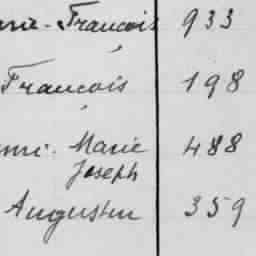 François 933
François 198
Marie 488
Joseph
Augustin 359